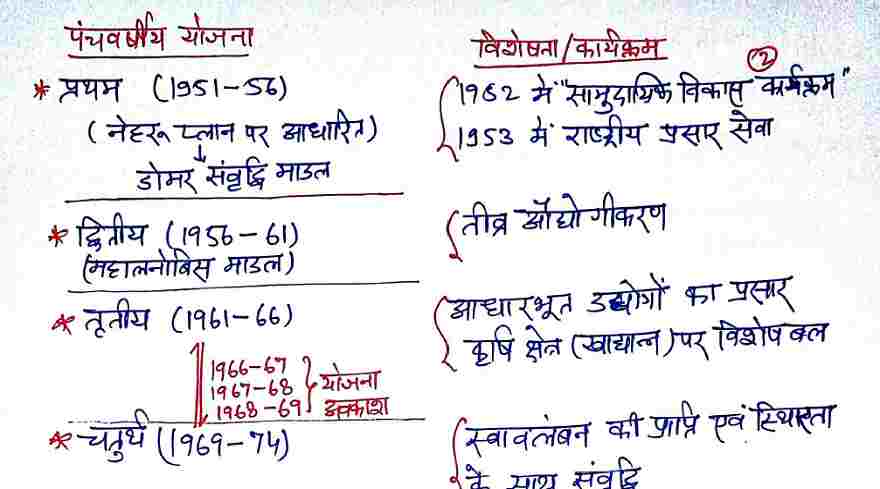 पंचवर्षीय योजना
* प्रथम (1951-56)
(नेहरू प्लान पर आधारित)
↓
डोमर संवृद्धि माडल
* द्वितीय (1956-61)
(महालनोबिस माडल)
* तृतीय (1961-66)
1966-67
1967-68
1968-69
योजना
अवकाश
* चतुर्थ (1969-74)
विशेषता/कार्यक्रम
2
1952 में "सामुदायिक विकास कार्यक्रम"
1953 में राष्ट्रीय प्रसार सेवा
तीव्र औद्योगीकरण
आधारभूत उद्योगों का प्रसार
कृषि क्षेत्र (खाद्यान्न) पर विशेष बल
स्वावलंबन की प्राप्ति एवं स्थिरता
के साथ संवृद्धि